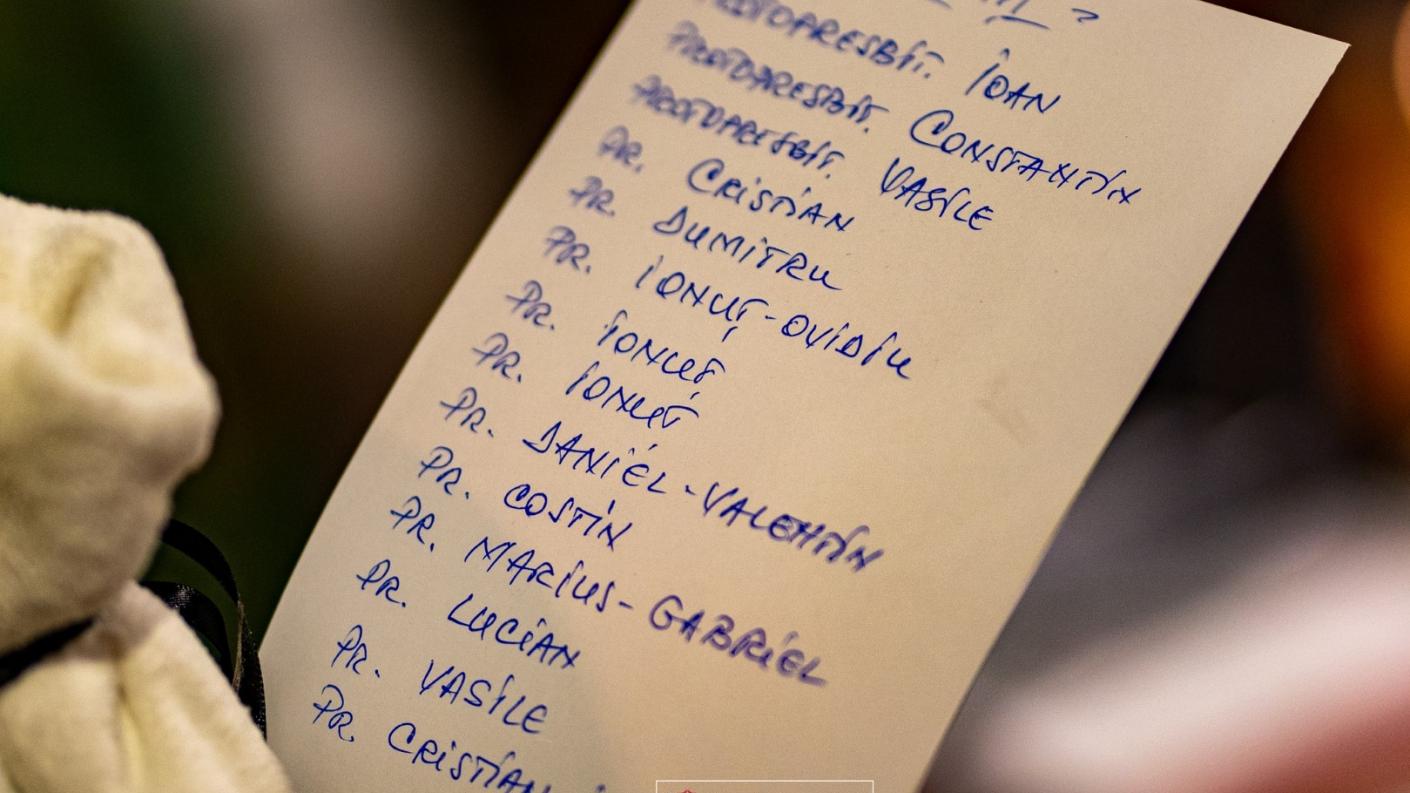 PROTOPRESBIT. IOAN
PROTOPRESBIT. CONSTANTIN
PROTOPRESBIT. VASILE
PR. CRISTIAN
PR. DUMITRU
PR. IONUȚ-OVIDIU
PR. IONUȚ
PR. IONUȚ
PR. DANIEL-VALENTIN
PR. COSTIN
PR. MARIUS-GABRIEL
PR. LUCIAN
PR. VASILE
PR. CRISTIAN